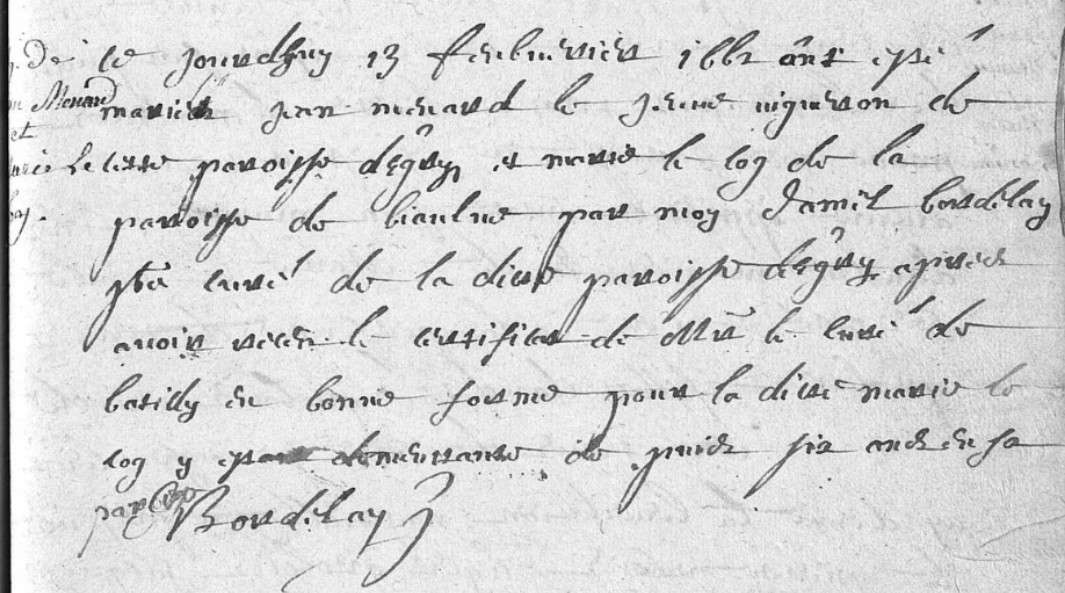 de
le jourdhuy 13 feubvrier 1662 ont esté
Menard
mariés jean menard le jeune vigneron de
et
cette paroisse degry et marie le coq de la
paroisse de biaulne par moy daniel bordelay
pbre curé de la ditte paroisse degry apres
avoir receu le certificat de Mr le curé de
batilly en bonne forme pour la ditte marie le
coq y estant demeurante de puis six ans en sa
paroisse
Bordelay